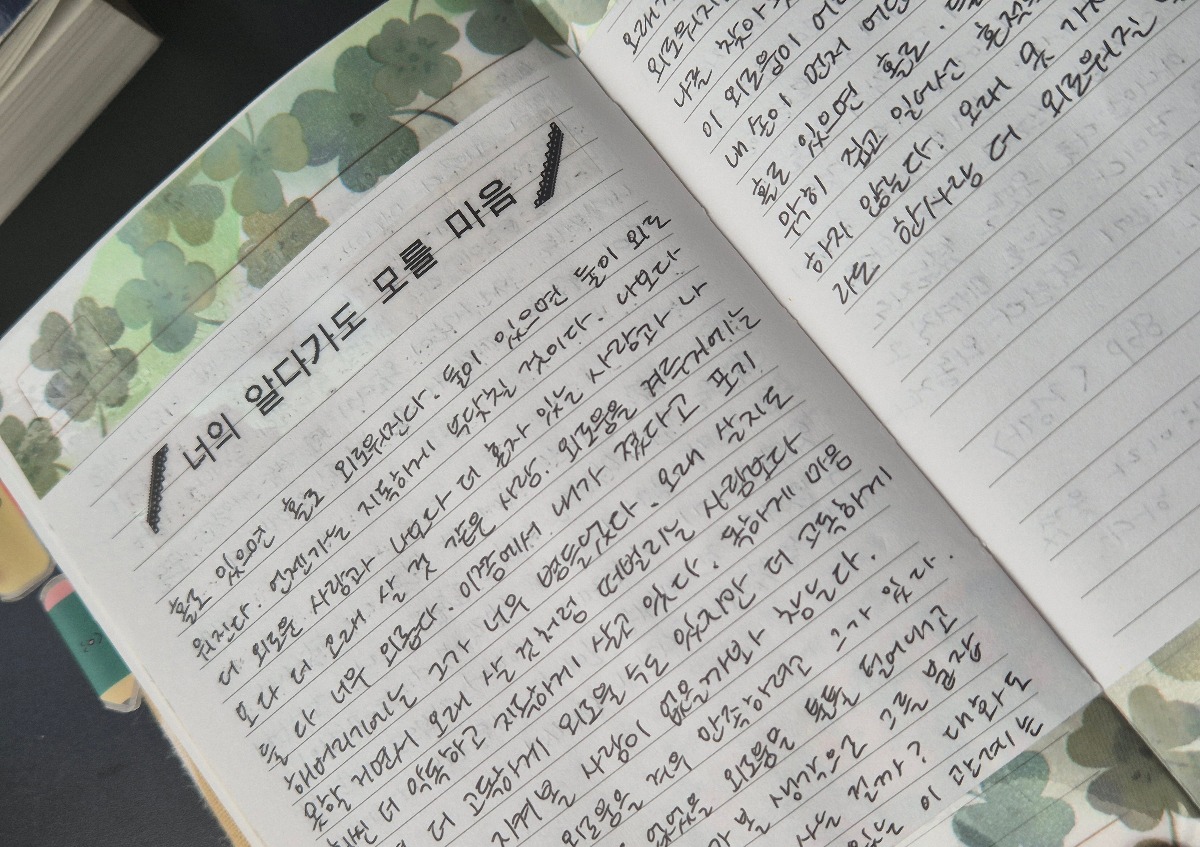 너의 알다가도 모를 마음
홀로 있으면 홀로 외로워진다. 둘이 있으면 둘이 외로
워진다. 언젠가는 지독하게 부닺칠 것이다. 나보다
더 외로운 사람과 너보다 더 혼자 있는 사람과 나
보다 더 오래 살 것 같은 사람. 외로움을 겨루기에는
둘 다 너무 외롭다. 이쯤에서 내가 졌다고 포기
해버리기에는 그가 너무 병들었다. 오래 살지도
못할 거면서 오래 살 것처럼 떠벌리는 사람보다
훨씬 더 악독하고 지독하게 살고 있다. 독하게 마음
더 고독하게 외로울 수도 있지만 더 고독하게
지켜볼 사람이 없을까보아 참는다.
외로움을 겨우 만족하려는 그가 있다.
없었을 외로움을 툴툴 털어내고
볼 생각으로 그를 붙잡
사는 걸까? 대화가 도
있는 이 관계는
오래
외로워지
나를 찾아
이 외로움이 어
내 손이 먼저 어
홀로 있으면 홀로.
우뚝히 짚고 일어선 혼잣
하지 않는다. 오래 못 가지
라는 한 사람 더 외로워질